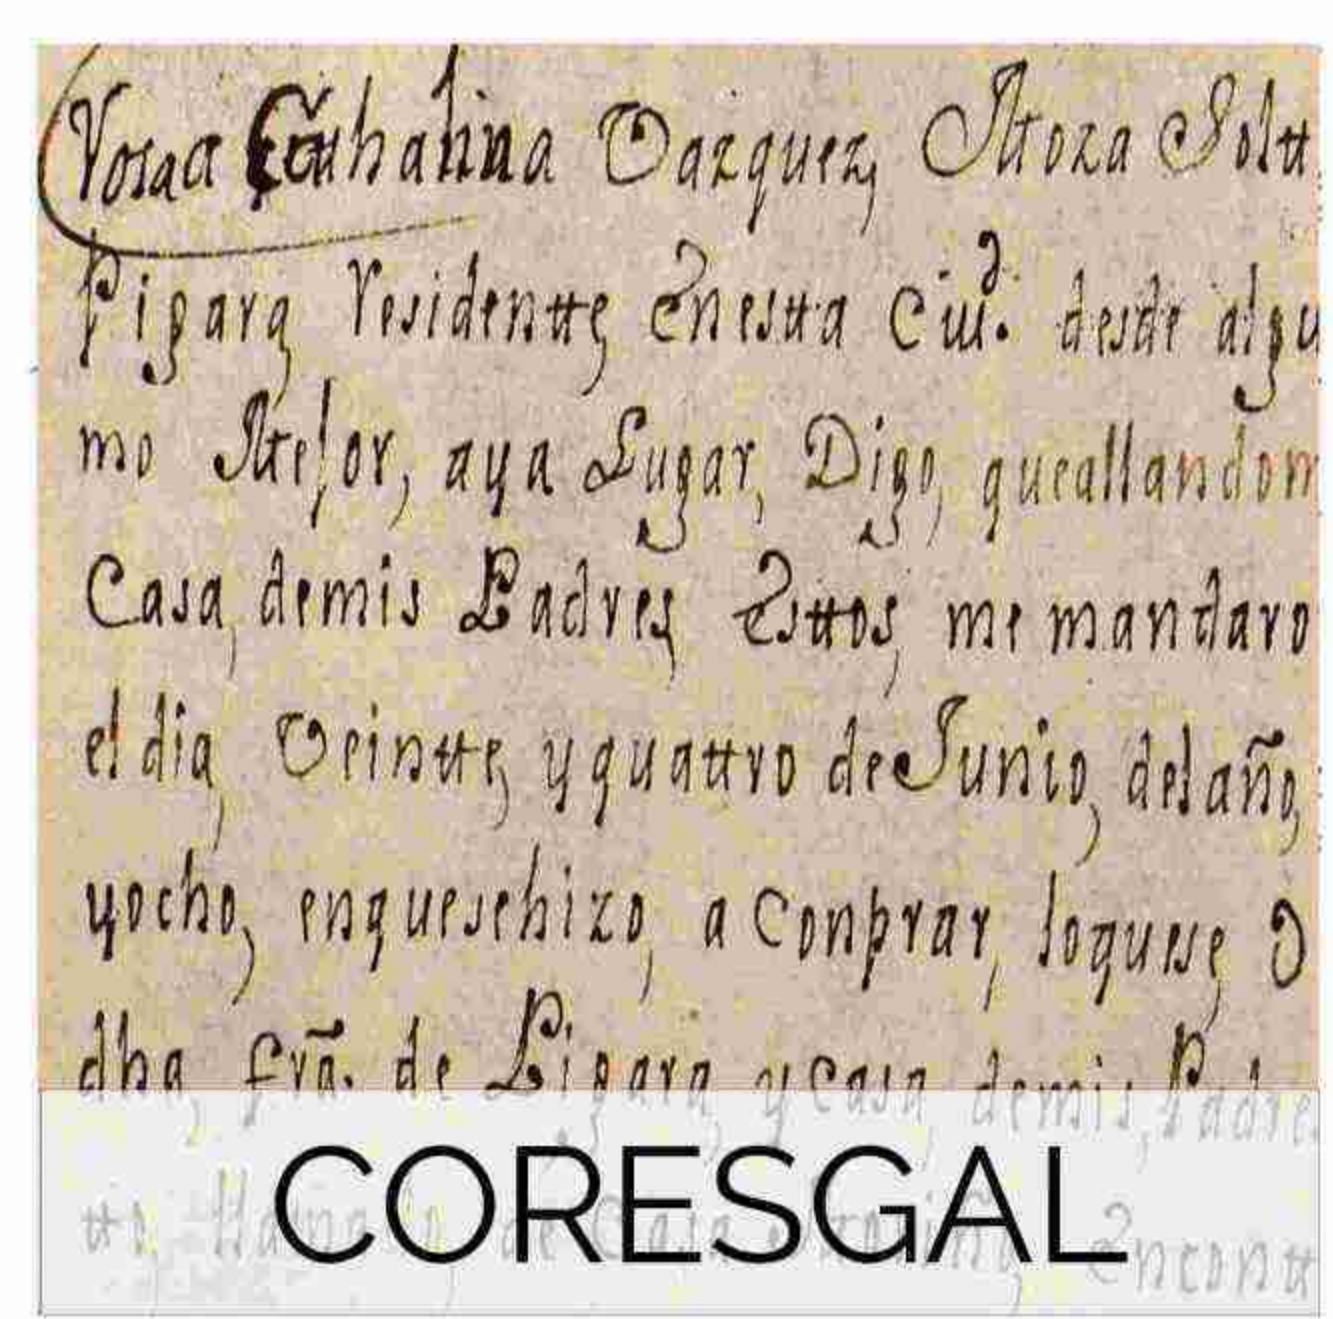 Rosa Cathalina Vazquez, Moza Soltt
Pigara, residentte, enestta Ciud. desde algu
mo Mejor, aya Lugar, Digo, queallandom
Casa, demis Padres, Esttos, me mandaro
el dia, Veintte, yquattro de Junio, del año,
yocho, enquesehizo, a Conprar, loquese, o
dha, frã. de Pigara, ycasa, demis, Padres
Encontt
CORESGAL